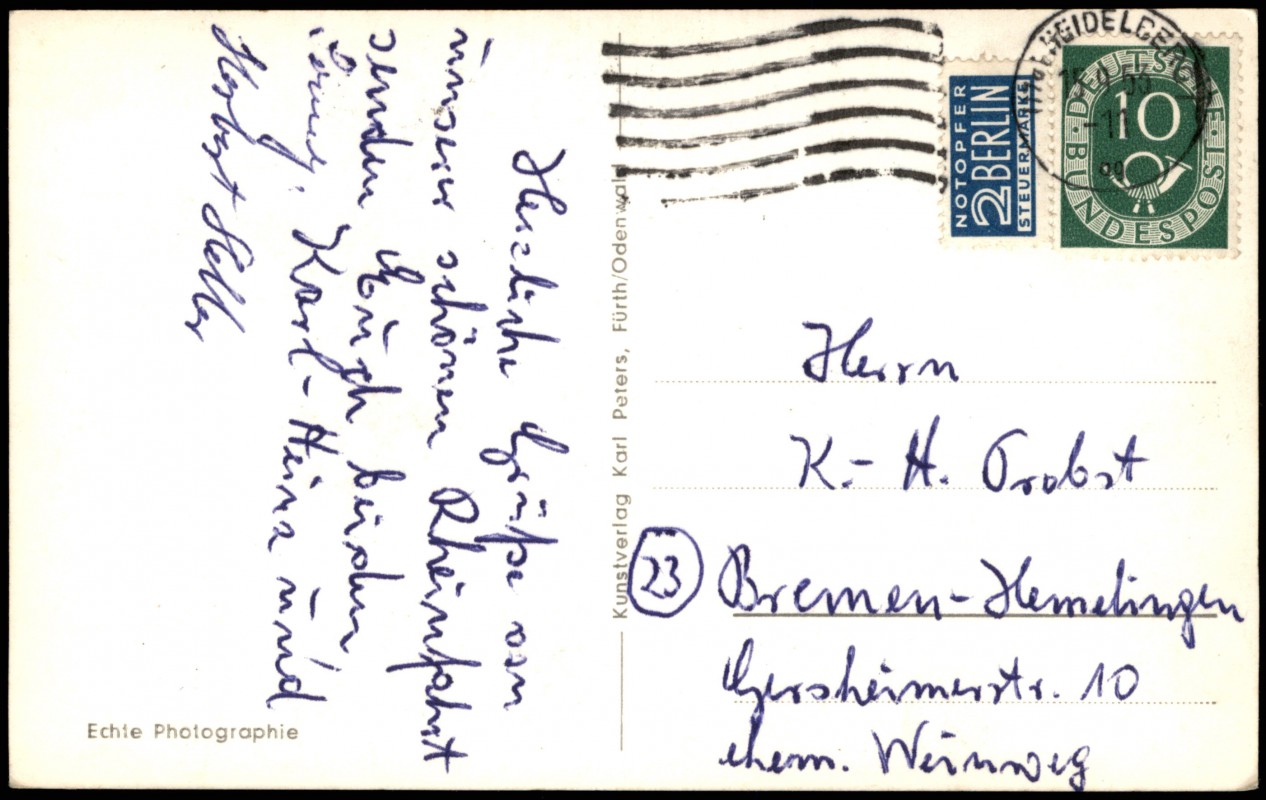 Herzliche Grüße von
unserer schönen Rheinfahrt
senden Euch beiden
Karl-Heinz und
Herbert Heller
Echte Photographie
Kunstverlag Karl Peters, Fürth/Odenwald
NOTOPFER
2 BERLIN
STEUERMARKE
HEIDELBERG
DEUTSCHE
10
BUNDESPOST
Herrn
K.-H. Probst
23
Bremen-Hemelingen
Gersheimerstr. 10
ehem. Weinweg